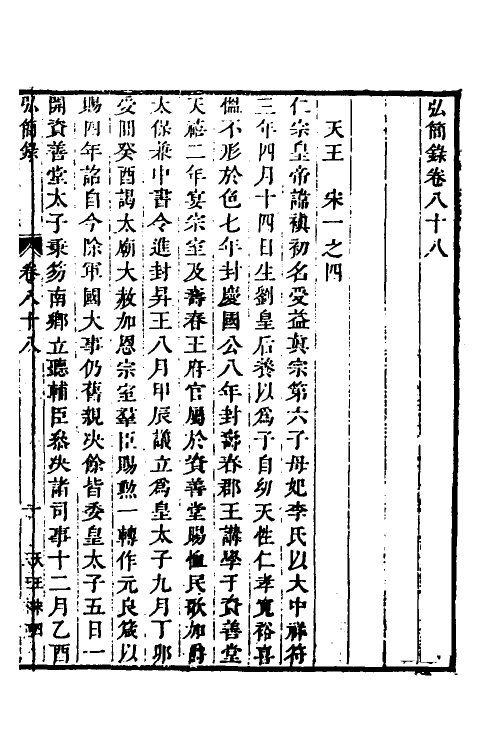 弘簡錄卷八十八
天王　宋一之四
仁宗皇帝諱禎初名受益眞宗第六子母妃李氏以大中祥符
三年四月十四日生劉皇后養以爲子自幼天性仁孝寬裕喜
慍不形於色七年封慶國公八年封壽春郡王講學于資善堂
天禧二年宴宗室及壽春王府官屬於資善堂賜恤民歌加爵
太保兼中書令進封昇王八月甲辰議立爲皇太子九月丁卯
受冊癸酉謁太廟大赦加恩宗室羣臣賜勲一轉作元良箴以
賜四年詔自今除軍國大事仍舊親决餘皆委皇太子五日一
開資善堂太子秉笏南鄉立聽輔臣叅决諸司事十二月乙酉
弘簡錄　卷八十八　一　天王宋四